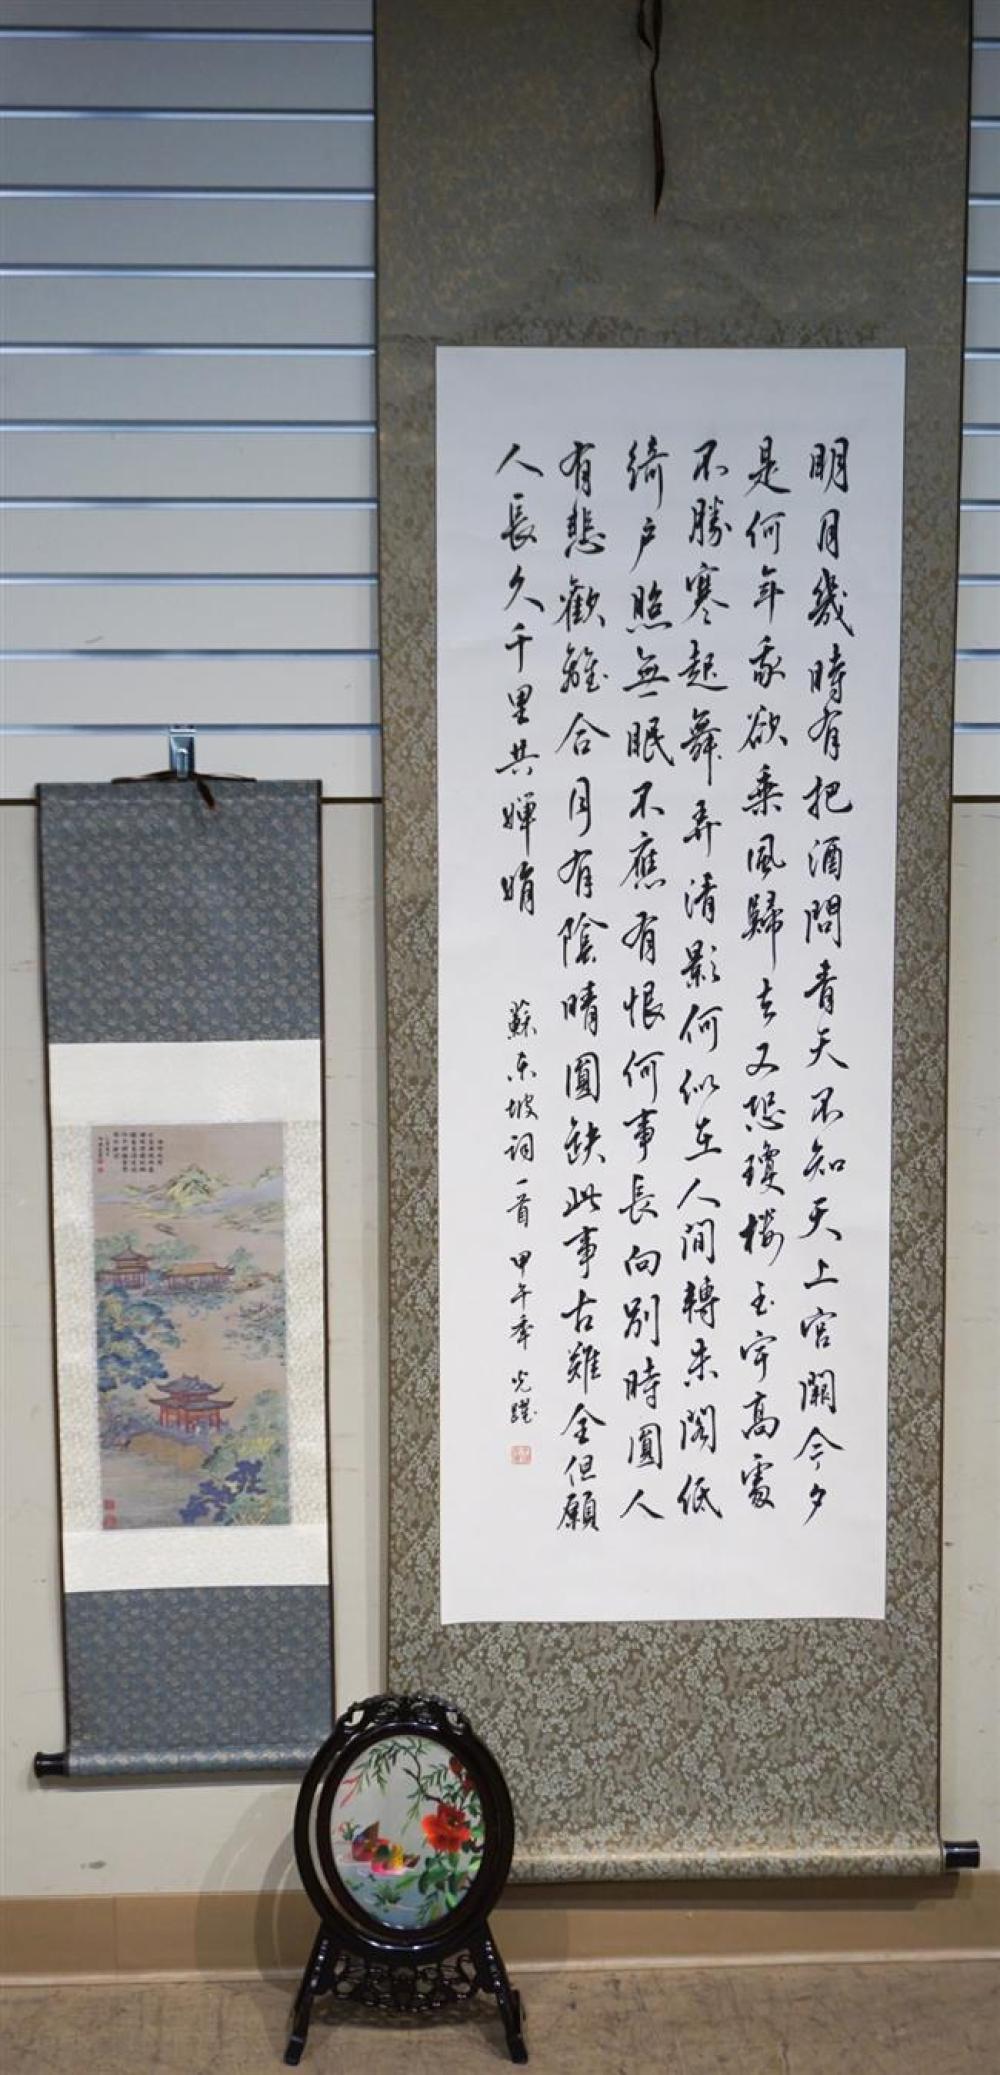 明月幾時有把酒問青天不知天上宮闕今夕
是何年我欲乘風歸去又恐瓊樓玉宇高處
不勝寒起舞弄清影何似在人間轉朱閣低
綺戶照無眠不應有恨何事長向別時圓人
有悲歡離合月有陰晴圓缺此事古難全但願
人長久千里共嬋娟
蘇東坡詞一首 甲午年 光躍